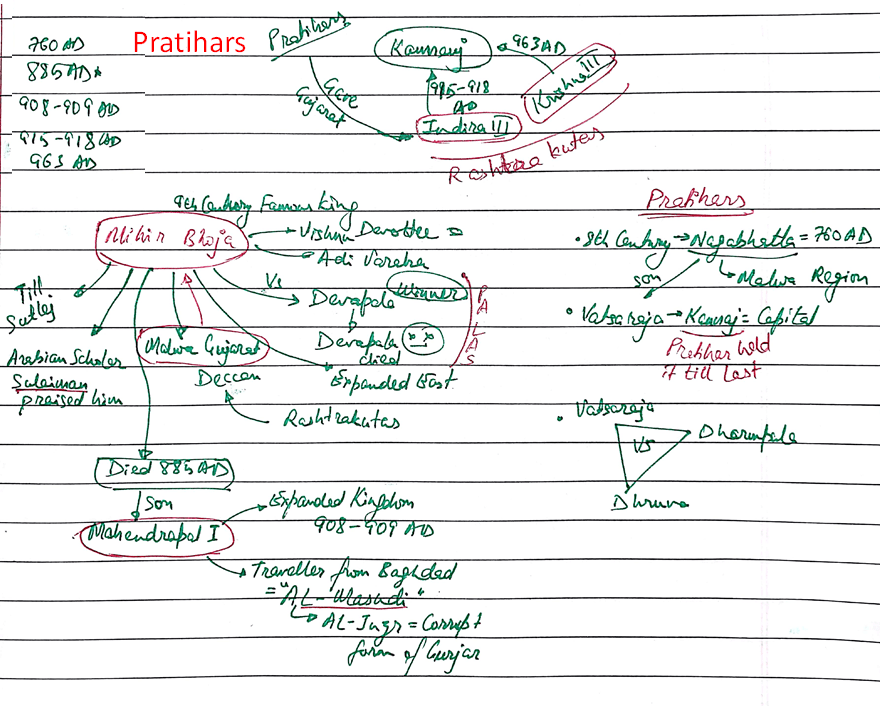 760 AD
885 AD*
908-909 AD
915-918 AD
963 AD
Pratihars
Pratihars
Gave
Gujarat
Kannauj
963 AD
915-918
AD
Krishna III
Indira III
Rashtrakutas
9th Century Famous King
Mihir Bhoja
Vishnu Devottee
Adi Varaha
Till
Sutlej
Arabian Scholer
Sulaiman
praised him
Malwa Gujarat
Deccan
Rashtrakutas
Vs
Devapala
Winner
Devapala
died
Expanded East
PALAS
Died 885 AD
Son
Mahendrapal I
Expanded Kingdom
908-909 AD
Traveller from Baghdad
= "AL-Masudi"
AL-Juzr = Corrupt
form of Gurjar
Pratihars
• 8th Century → Nagabhatta = 760 AD
Malwa Region
son
• Vatsaraja → Kannauj = Capital
Pratihar held
it till last
• Vatsaraja
VS
Dharmpala
Dhruva